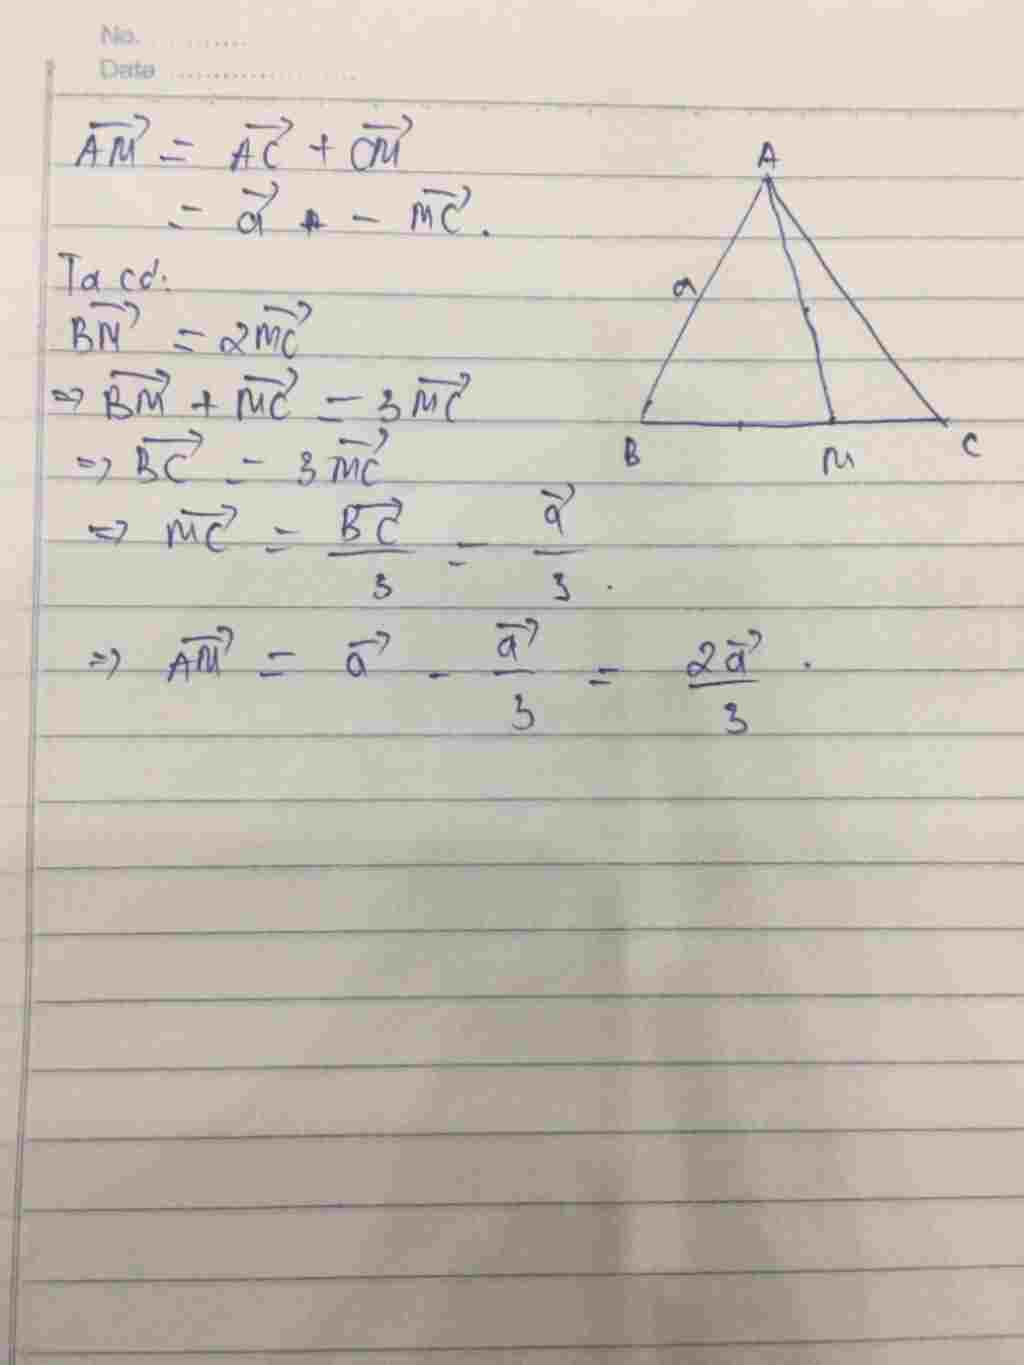 No. ............
Data ........................
$\overrightarrow{AM} = \overrightarrow{AC} + \overrightarrow{CM}$
$= \overrightarrow{a} - \overrightarrow{MC}.$
Ta có:
$\overrightarrow{BM} = 2\overrightarrow{MC}$
$\Rightarrow \overrightarrow{BM} + \overrightarrow{MC} = 3\overrightarrow{MC}$
$\Rightarrow \overrightarrow{BC} = 3\overrightarrow{MC}$
$\Rightarrow \overrightarrow{MC} = \frac{\overrightarrow{BC}}{3} = \frac{\overrightarrow{a}}{3}.$
$\Rightarrow \overrightarrow{AM} = \overrightarrow{a} - \frac{\overrightarrow{a}}{3} = \frac{2\overrightarrow{a}}{3}.$
A
a
B M C